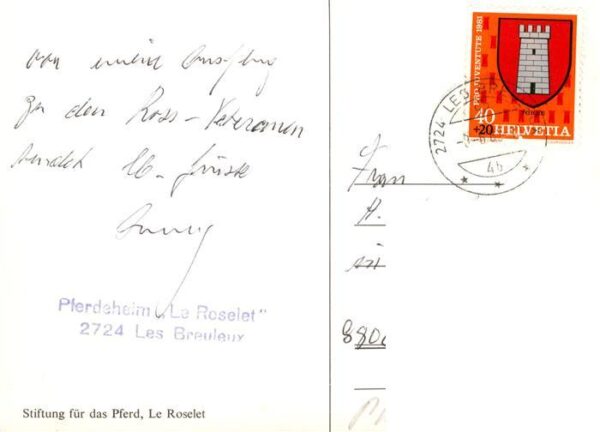 von mein Ausflug
zu den Ross-Veteranen
sendet lb. Grüsse
Pferdeheim „Le Roselet"
2724 Les Breuleux
Stiftung für das Pferd, Le Roselet
PRO JUVENTUTE 1981
40
+20 HELVETIA
2724 LES
4b
Frau
H.
880